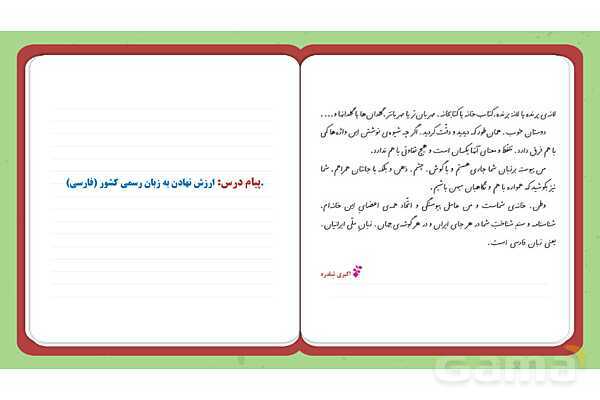 لانه‌ی پرنده یا لانهٔ پرنده، کتاب خانه یا کتابخانه، مهربان تر یا مهربانتر، گلدان ها یا گلدانها و....
دوستان خوب، همان طور که دیدید و دقّت کردید، اگر چه شیوه‌ی نوشتن این واژه‌ها کمی
با هم فرق دارد، تلفّظ و معنای آنها یکسان است و هیچ تفاوتی با هم ندارد.
من پیوسته بر زبان شما جاری هستم و با گوش، چشم، ذهن و بلکه با جانتان همراهم. شما
نیز بکوشید که همواره با هم و نگاهبان میهن باشیم.
وطن، خانه‌ی شماست و من عامل پیوستگی و اتّحاد همه‌ی اعضای این خانه‌ام.
شناسنامه و سند شناخت شما در هر جای ایران و در هر گوشه‌ی جهان، زبان ملّی ایرانیان،
یعنی زبان فارسی است.
اکبری شلدره
.پیام درس: ارزش نهادن به زبان رسمی کشور (فارسی)
Gama